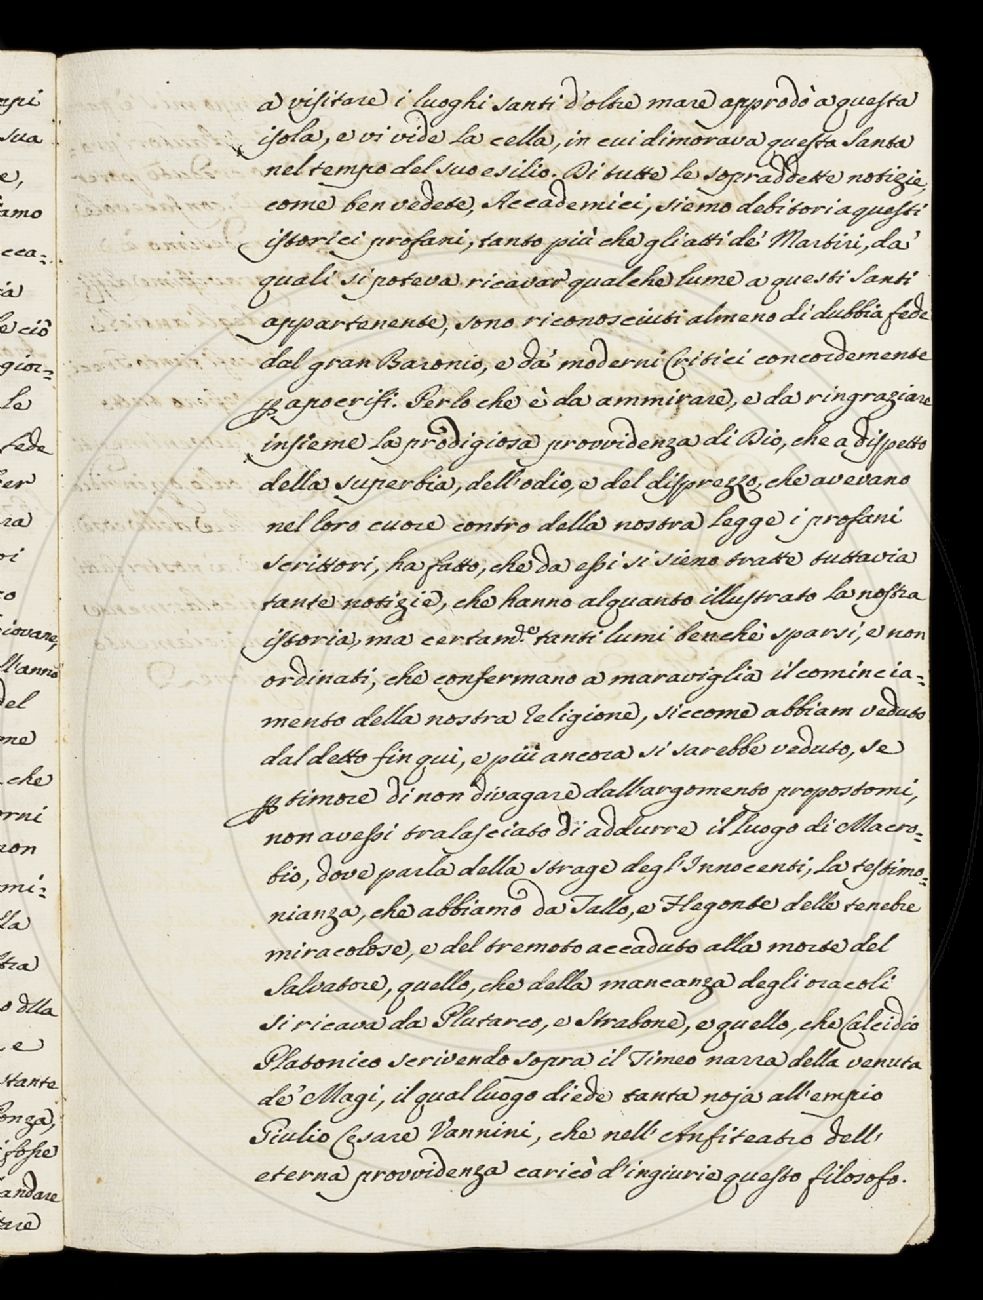 a visitare i luoghi santi d'oltre mare approdò a questa
isola, e vi vide la cella, in cui dimorava questa Santa
nel tempo del suo esilio. Di tutte le sopraddette notizie,
come ben vedete, Accademici, siemo debitori a questi
istorici profani, tanto più che gli atti de' Martiri, da'
quali si poteva ricavar qualche lume a questi Santi
appartenente, sono riconosciuti almeno di dubbia fede
dal gran Baronio, e da' moderni Critici concordemente
p apocrifi. Perlochè è da ammirare, e da ringraziare
insieme la prodigiosa provvidenza di Dio, che a dispetto
della superbia, dell'odio, e del disprezzo, che avevano
nel loro cuore contro della nostra Legge i profani
scrittori, ha fatto, che da essi si sieno tratte tuttavia
tante notizie, che hanno alquanto illustrato la nostra
istoria, ma certam.te tanti lumi benchè sparsi, e non
ordinati, che confermano a maraviglia il comincia=
mento della nostra Religione, siccome abbiam veduto
dal detto fin qui, e più ancora si sarebbe veduto, se
p timore di non divagare dall'argomento propostomi,
non avessi tralasciato di addurre il luogo di Macro=
bio, dove parla della strage degl'Innocenti, la testimo=
nianza, che abbiamo da Tallo, e Flegonte delle tenebre
miracolose, e del tremoto accaduto alla morte del
Salvatore, quello, che della mancanza degli oracoli
si ricava da Plutarco, e Strabone, e quello, che Calcidio
Platonico scrivendo sopra il Timeo narra della venuta
de' Magi, il qual luogo diede tanta noja all'empio
Giulio Cesare Vannini, che nell'Anfiteatro dell'
eterna provvidenza caricò d'ingiurie questo filosofo.